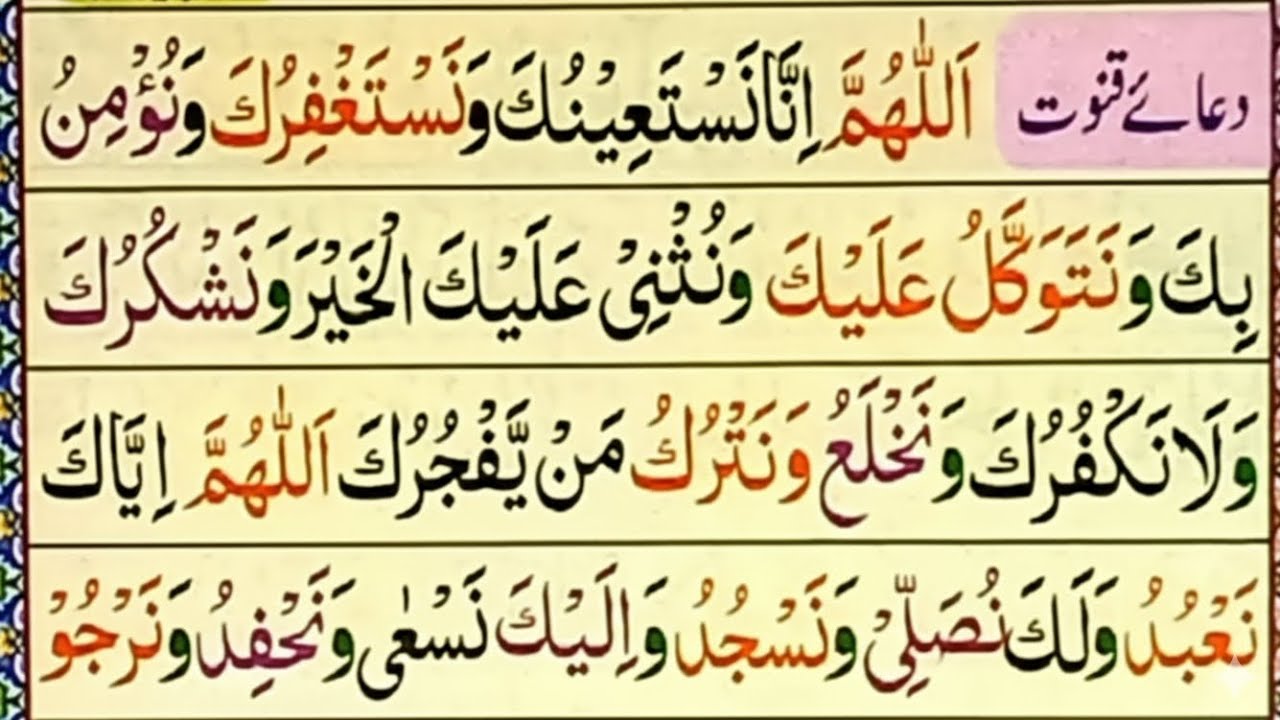 دعائے قنوت اَللّٰهُمَّ اِنَّا نَسْتَعِيْنُكَ وَنَسْتَغْفِرُكَ وَنُؤْمِنُ
بِكَ وَنَتَوَكَّلُ عَلَيْكَ وَنُثْنِيْ عَلَيْكَ الْخَيْرَ وَنَشْكُرُكَ
وَلَا نَكْفُرُكَ وَنَخْلَعُ وَنَتْرُكُ مَنْ يَّفْجُرُكَ اَللّٰهُمَّ اِيَّاكَ
نَعْبُدُ وَلَكَ نُصَلِّيْ وَنَسْجُدُ وَاِلَيْكَ نَسْعٰى وَنَحْفِدُ وَنَرْجُوْ